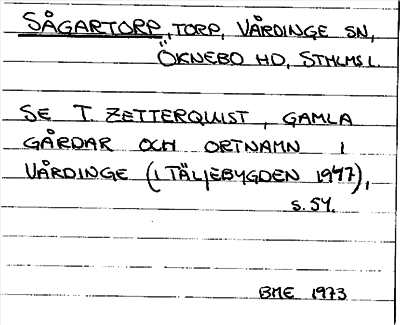 SÅGARTORP, TORP, VÅRDINGE SN,
ÖKNEBO HD, STHLMS L.
SE T. ZETTERQUIST, GAMLA
GÅRDAR OCH ORTNAMN I
VÅRDINGE (I TÄLJEBYGDEN 1947),
s. 54.
BME 1973